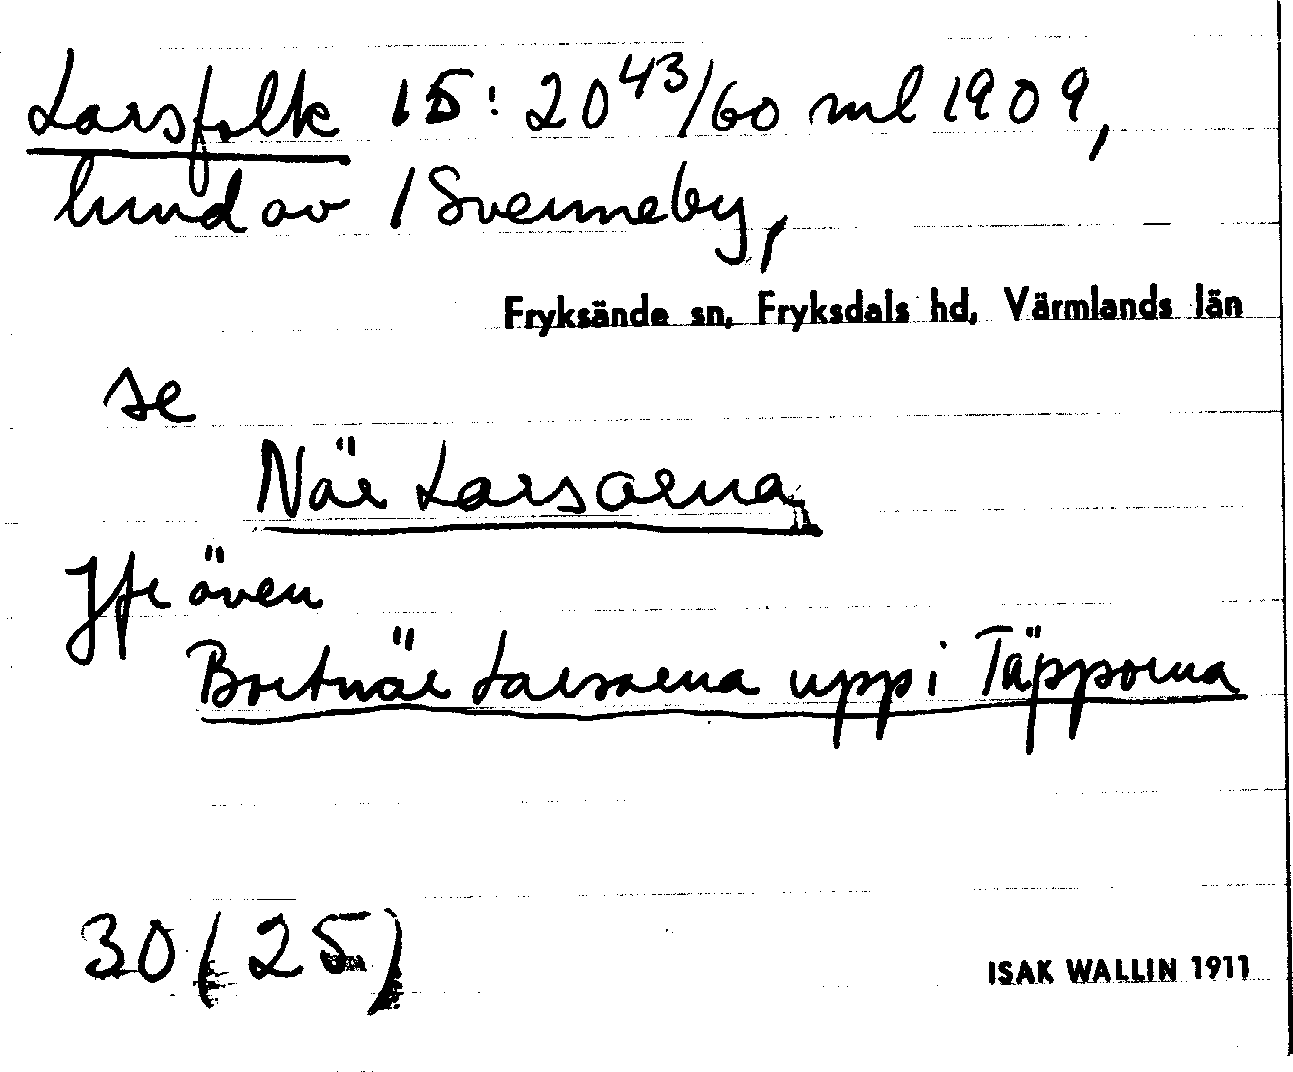 Larsfolk 15: 20 43/60 ml 1909,
hmd av 1 Svenneby,
Fryksände sn, Fryksdals hd, Värmlands län
se
När Larsarna
Jfr även
Bortnär Larsarna uppi Täpporna
30 (25)
ISAK WALLIN 1911